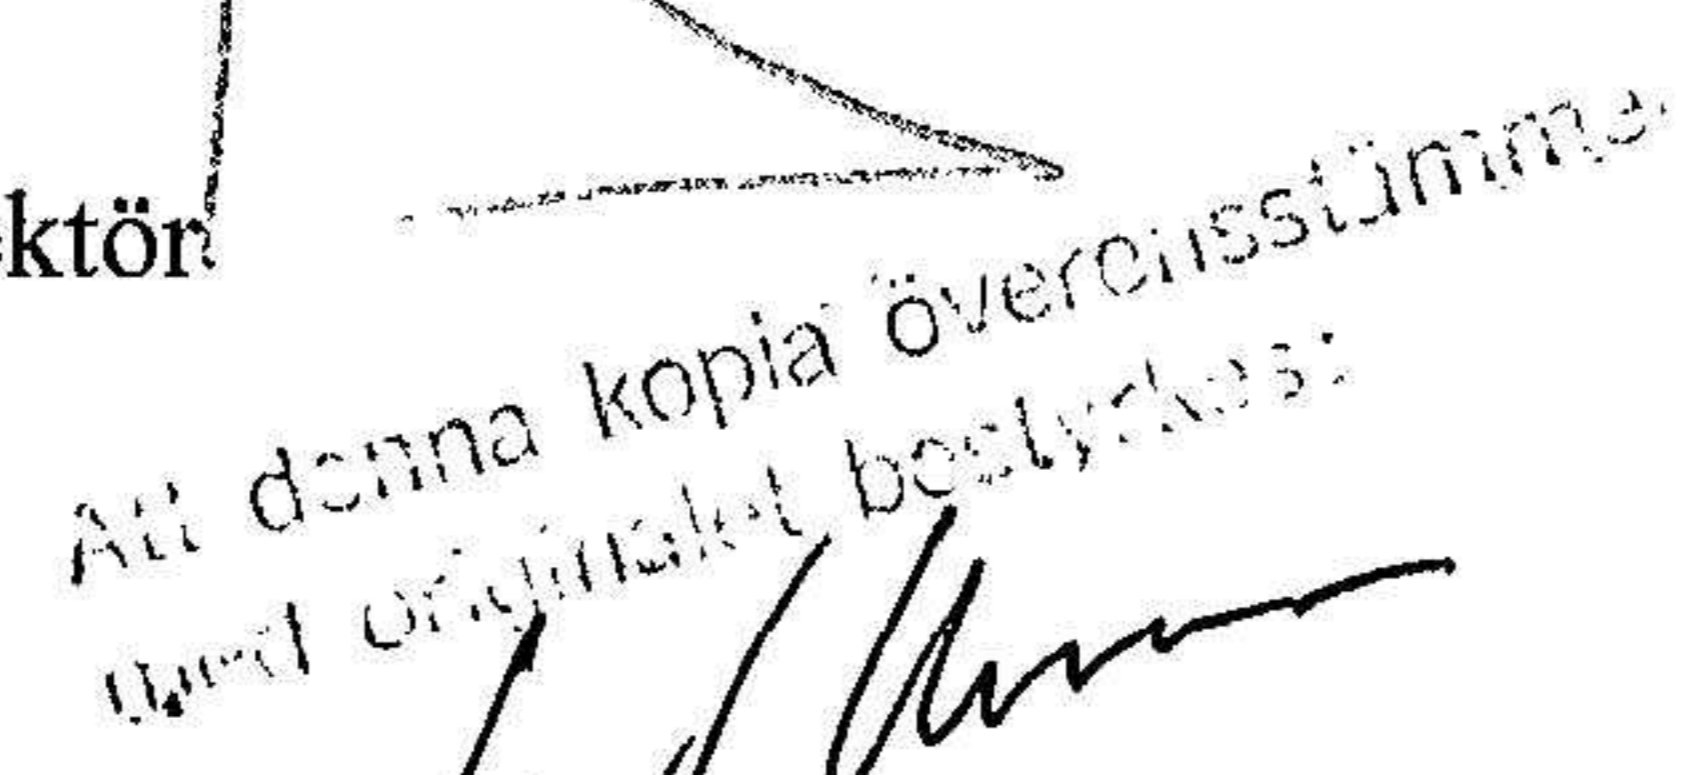 ktör
Att denna kopia överensstämmer
med originalet bestyrkes: